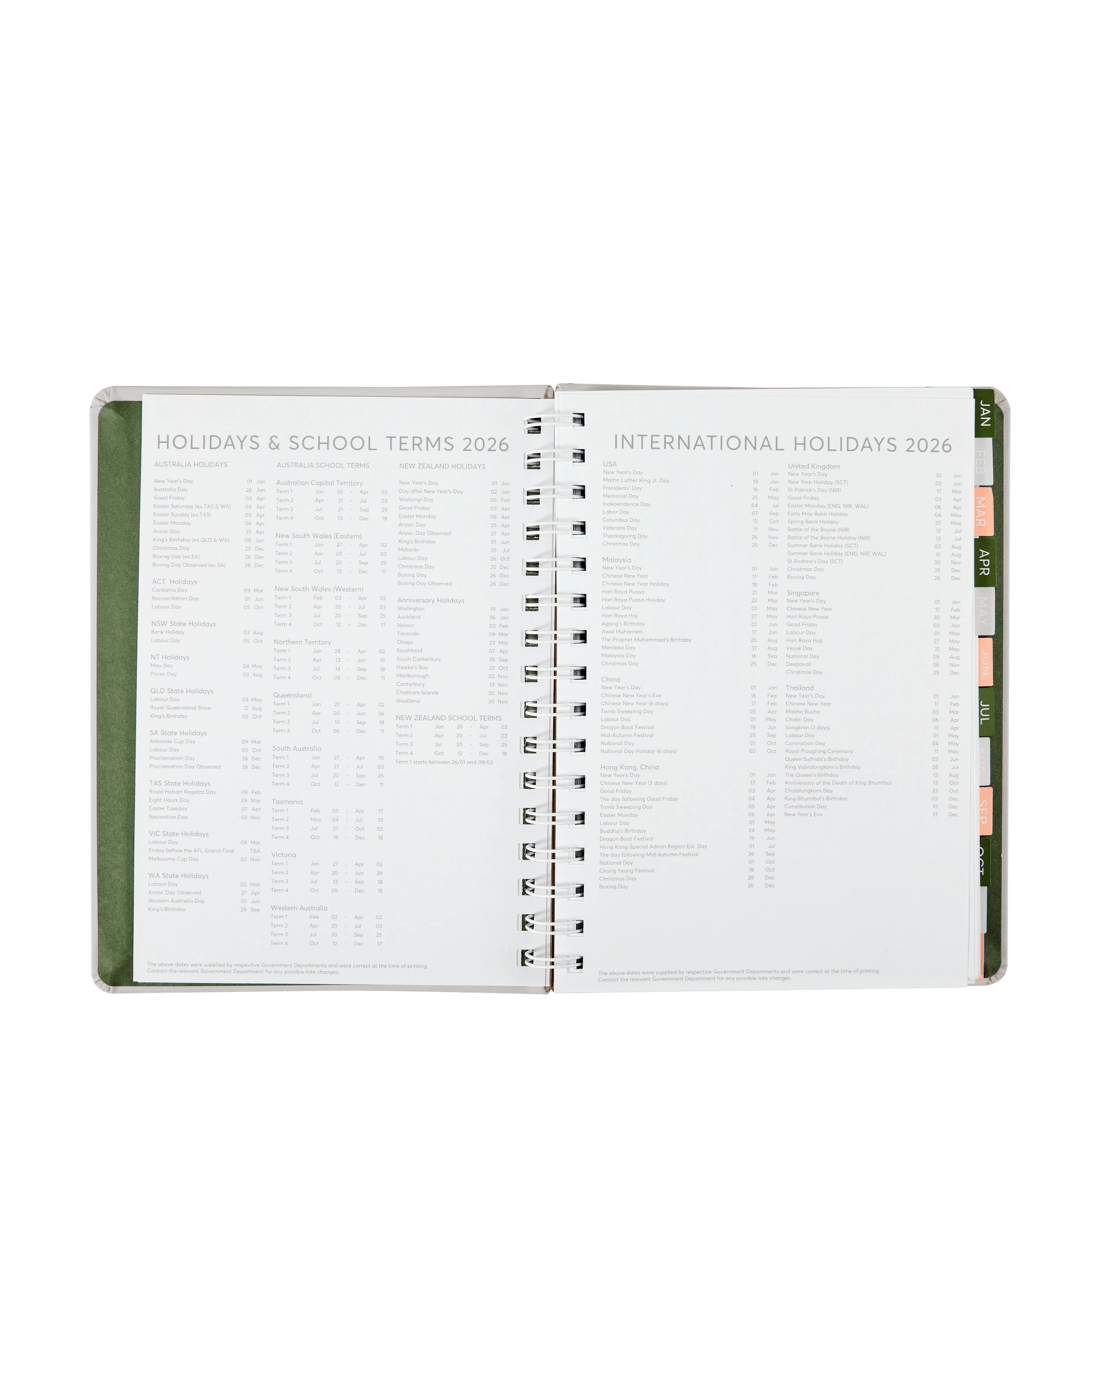 HOLIDAYS & SCHOOL TERMS 2026
AUSTRALIA HOLIDAYS
New Year's Day 01 Jan
Australia Day 26 Jan
Good Friday 03 Apr
Easter Saturday (ex TAS & WA) 04 Apr
Easter Sunday (ex TAS) 05 Apr
Easter Monday 06 Apr
Anzac Day 25 Apr
King's Birthday (ex QLD & WA) 08 Jun
Christmas Day 25 Dec
Boxing Day (ex SA) 26 Dec
Boxing Day Observed (ex SA) 28 Dec
ACT Holidays
Canberra Day 09 Mar
Reconciliation Day 01 Jun
Labour Day 05 Oct
NSW State Holidays
Bank Holiday 03 Aug
Labour Day 05 Oct
NT Holidays
May Day 04 May
Picnic Day 03 Aug
QLD State Holidays
Labour Day 04 May
Royal Queensland Show 12 Aug
King's Birthday 05 Oct
SA State Holidays
Adelaide Cup Day 09 Mar
Labour Day 05 Oct
Proclamation Day 26 Dec
Proclamation Day Observed 28 Dec
TAS State Holidays
Royal Hobart Regatta Day 09 Feb
Eight Hours Day 09 Mar
Easter Tuesday 07 Apr
Recreation Day 02 Nov
VIC State Holidays
Labour Day 09 Mar
Friday before the AFL Grand Final TBA
Melbourne Cup Day 03 Nov
WA State Holidays
Labour Day 02 Mar
Anzac Day Observed 27 Apr
Western Australia Day 01 Jun
King's Birthday 28 Sep
AUSTRALIA SCHOOL TERMS
Australian Capital Territory
Term 1 Jan - Apr 02
Term 2 Apr 21 - Jul 03
Term 3 Jul 21 - Sep 25
Term 4 Oct 13 - Dec 18
New South Wales (Eastern)
Term 1 Jan 27 - Apr 02
Term 2 Apr 20 - Jul 03
Term 3 Jul 20 - Sep 25
Term 4 Oct 12 - Dec 17
New South Wales (Western)
Term 1 Feb 03 - Apr 02
Term 2 Apr 20 - Jul 03
Term 3 Jul 20 - Sep 25
Term 4 Oct 12 - Dec 17
Northern Territory
Term 1 Jan 28 - Apr 02
Term 2 Apr 13 - Jun 19
Term 3 Jul 14 - Sep 18
Term 4 Oct 05 - Dec 11
Queensland
Term 1 Jan 27 - Apr 02
Term 2 Apr 20 - Jun 26
Term 3 Jul 13 - Sep 18
Term 4 Oct 06 - Dec 11
South Australia
Term 1 Jan 27 - Apr 10
Term 2 Apr 27 - Jul 03
Term 3 Jul 20 - Sep 25
Term 4 Oct 12 - Dec 11
Tasmania
Term 1 Feb 05 - Apr 17
Term 2 May 04 - Jul 10
Term 3 Jul 27 - Oct 02
Term 4 Oct 19 - Dec 18
Victoria
Term 1 Jan 27 - Apr 02
Term 2 Apr 20 - Jun 26
Term 3 Jul 13 - Sep 18
Term 4 Oct 05 - Dec 18
Western Australia
Term 1 Feb 02 - Apr 02
Term 2 Apr 20 - Jul 03
Term 3 Jul 20 - Sep 25
Term 4 Oct 12 - Dec 17
NEW ZEALAND HOLIDAYS
New Year's Day 01 Jan
Day after New Year's Day 02 Jan
Waitangi Day 06 Feb
Good Friday 03 Apr
Easter Monday 06 Apr
Anzac Day 25 Apr
Anzac Day Observed 27 Apr
King's Birthday 01 Jun
Matariki 10 Jul
Labour Day 26 Oct
Christmas Day 25 Dec
Boxing Day 26 Dec
Boxing Day Observed 28 Dec
Anniversary Holidays
Wellington 19 Jan
Auckland 26 Jan
Nelson 02 Feb
Taranaki 09 Mar
Otago 23 Mar
Southland 07 Apr
South Canterbury 28 Sep
Hawke's Bay 23 Oct
Marlborough 02 Nov
Canterbury 13 Nov
Chatham Islands 30 Nov
Westland 30 Nov
NEW ZEALAND SCHOOL TERMS
Term 1 Jan 26 - Apr 02
Term 2 Apr 20 - Jul 03
Term 3 Jul 20 - Sep 25
Term 4 Oct 12 - Dec 18
Term 1 starts between 26/01 and 09/02
The above dates were supplied by respective Government Departments and were correct at the time of printing.
Contact the relevant Government Department for any possible late changes.
INTERNATIONAL HOLIDAYS 2026
USA
New Year's Day 01 Jan
Martin Luther King Jr. Day 19 Jan
Presidents' Day 16 Feb
Memorial Day 25 May
Independence Day 04 Jul
Labor Day 07 Sep
Columbus Day 12 Oct
Veterans Day 11 Nov
Thanksgiving Day 26 Nov
Christmas Day 25 Dec
Malaysia
New Year's Day 01 Jan
Chinese New Year 17 Feb
Chinese New Year Holiday 18 Feb
Hari Raya Puasa 21 Mar
Hari Raya Puasa Holiday 22 Mar
Labour Day 01 May
Hari Raya Haji 27 May
Agong's Birthday 01 Jun
Awal Muharram 17 Jun
The Prophet Muhammad's Birthday 25 Aug
Merdeka Day 31 Aug
Malaysia Day 16 Sep
Christmas Day 25 Dec
China
New Year's Day 01 Jan
Chinese New Year's Eve 16 Feb
Chinese New Year (6 days) 17 Feb
Tomb Sweeping Day 05 Apr
Labour Day 01 May
Dragon Boat Festival 19 Jun
Mid-Autumn Festival 25 Sep
National Day 01 Oct
National Day Holiday (6 days) 02 Oct
Hong Kong, China
New Year's Day 01 Jan
Chinese New Year (3 days) 17 Feb
Good Friday 03 Apr
The day following Good Friday 04 Apr
Tomb Sweeping Day Apr
Easter Monday 06 Apr
Labour Day 01 May
Buddha's Birthday 24 May
Dragon Boat Festival 19 Jun
Hong Kong Special Admin Region Est. Day 01 Jul
The day following Mid-Autumn Festival 26 Sep
National Day 01 Oct
Chung Yeung Festival 18 Oct
Christmas Day 25 Dec
Boxing Day 26 Dec
United Kingdom
New Year's Day 01 Jan
New Year Holiday (SCT) 02 Jan
St Patrick's Day (NIR) 17 Mar
Good Friday 03 Apr
Easter Monday (ENG, NIR, WAL) 06 Apr
Early May Bank Holiday 04 May
Spring Bank Holiday 25 May
Battle of the Boyne (NIR) 12 Jul
Battle of the Boyne Holiday (NIR) 13 Jul
Summer Bank Holiday (SCT) 03 Aug
Summer Bank Holiday (ENG, NIR, WAL) 31 Aug
St Andrew's Day (SCT) 30 Nov
Christmas Day 25 Dec
Boxing Day 26 Dec
Singapore
New Year's Day 01 Jan
Chinese New Year 17 Feb
Hari Raya Puasa Mar
Good Friday 03 Apr
Labour Day 01 May
Hari Raya Haji 27 May
Vesak Day 31 May
National Day 09 Aug
Deepavali 08 Nov
Christmas Day 25 Dec
Thailand
New Year's Day 01 Jan
Chinese New Year 17 Feb
Makha Bucha 03 Mar
Chakri Day 06 Apr
Songkran (3 days) 13 Apr
Labour Day 01 May
Coronation Day 04 May
Royal Ploughing Ceremony 11 May
Queen Suthida's Birthday 03 Jun
King Vajiralongkorn's Birthday 28 Jul
The Queen's Birthday 12 Aug
Anniversary of the Death of King Bhumibol 13 Oct
Chulalongkorn Day 23 Oct
King Bhumibol's Birthday 05 Dec
Constitution Day 10 Dec
New Year's Eve 31 Dec
The above dates were supplied by respective Government Departments and were correct at the time of printing.
Contact the relevant Government Department for any possible late changes.
JAN
FEB
MAR
APR
MAY
JUN
JUL
SEP
OCT